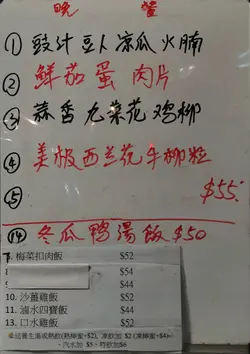 晚 餐
① 豉汁豆卜凉瓜火腩
② 鲜茄蛋肉片
③ 蒜香九菜花鸡柳
④ 美极西兰花牛柳粒
⑤ $55
⑭ 冬瓜鸭湯飯 $50
梅菜扣肉飯 $52
$54
$44
10. 沙薑雞飯 $52
11. 滷水四寶飯 $44
13. 口水雞飯 $52